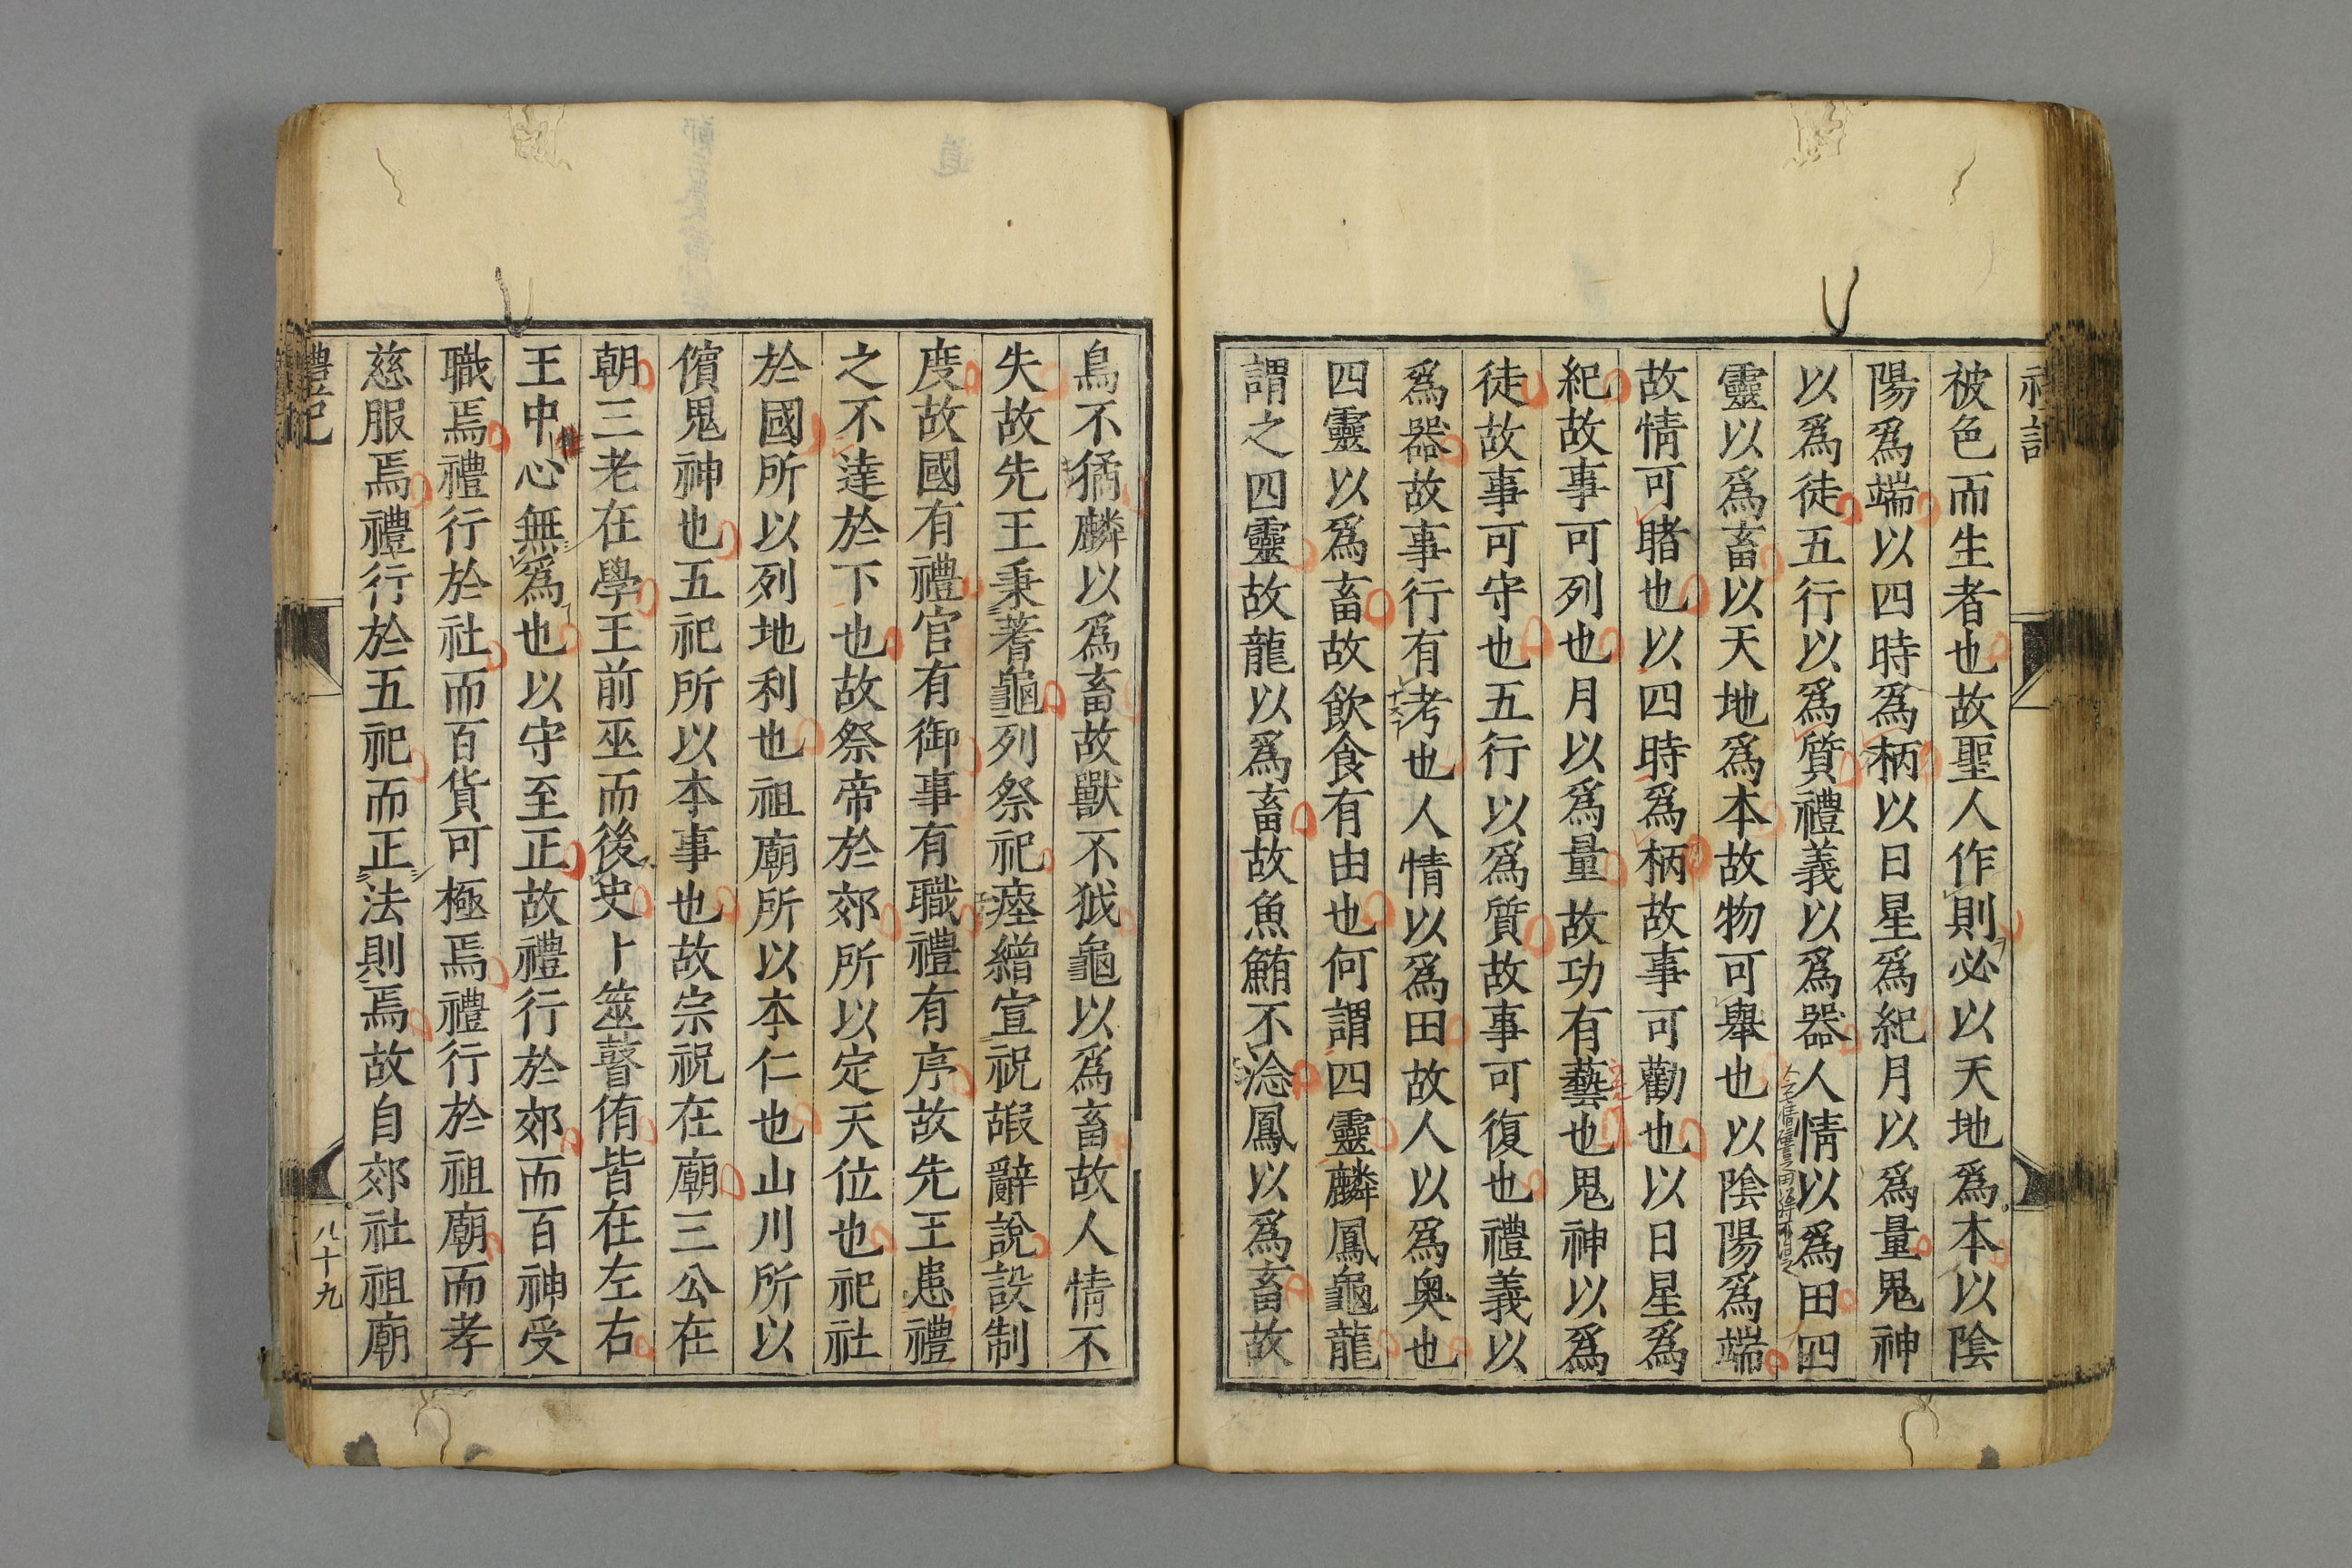 禮記
被色而生者也故聖人作則必以天地爲本以陰
陽爲端以四時爲柄以日星爲紀月以爲量鬼神
以爲徒五行以爲質禮義以爲器人情以爲田四
靈以爲畜以天地爲本故物可舉也以陰陽爲端
故情可睹也以四時爲柄故事可勸也以日星爲
紀故事可列也月以爲量故功有藝也鬼神以爲
徒故事可守也五行以爲質故事可復也禮義以
爲器故事行有考也人情以爲田故人以爲奥也
四靈以爲畜故飲食有由也何謂四靈麟鳳龜龍
謂之四靈故龍以爲畜故魚鮪不淰鳳以爲畜故
鳥不獝麟以爲畜故獸不狘龜以爲畜故人情不
失故先王秉蓍龜列祭祀瘞繒宣祝嘏辭說設制
度故國有禮官有御事有職禮有序故先王患禮
之不達於下也故祭帝於郊所以定天位也祀社
於國所以列地利也祖廟所以本仁也山川所以
儐鬼神也五祀所以本事也故宗祝在廟三公在
朝三老在學王前巫而後史卜筮瞽侑皆在左右
王中心無爲也以守至正故禮行於郊而百神受
職焉禮行於社而百貨可極焉禮行於祖廟而孝
慈服焉禮行於五祀而正法則焉故自郊社祖廟
禮記
八十九